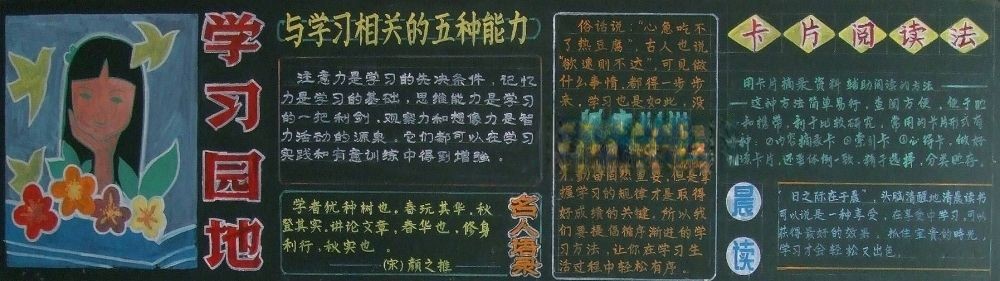 学习园地
与学习相关的五种能力
注意力是学习的先决条件，记忆
力是学习的基础，思维能力是学习
的一把利剑，观察力和想像力是智
力活动的源泉。它们都可以在学习
实践和有意训练中得到增强。
学者犹种树也，春玩其华，秋
登其实，讲论文章，春华也，修身
利行，秋实也。
(宋)颜之推
名人语录
俗话说："心急吃不
了热豆腐"，古人也说
"欲速则不达"，可见做
什么事情，都得一步步
来，学习也是如此，没
重要，但是掌
握学习的规律才是取得
好成绩的关键，所以我
们要提倡循序渐进的学
习方法，让你在学习生
活过程中轻松有序。
卡片阅读法
用卡片摘录资料辅助阅读的方法
这种方法简单易行，查阅方便，便于贮
和携带，利于比较研究，常用的卡片形式有
种：①内容摘录卡②索引卡③心得卡，做好
读卡片，还要体例一致，精于选择，分类贮存。
晨读
日之际在于晨"，头脑清醒地清晨读书
可以说是一种享受，在享受中学习，可以
获得最好的效果。抓住宝贵的时光，
学习才会轻松又出色。